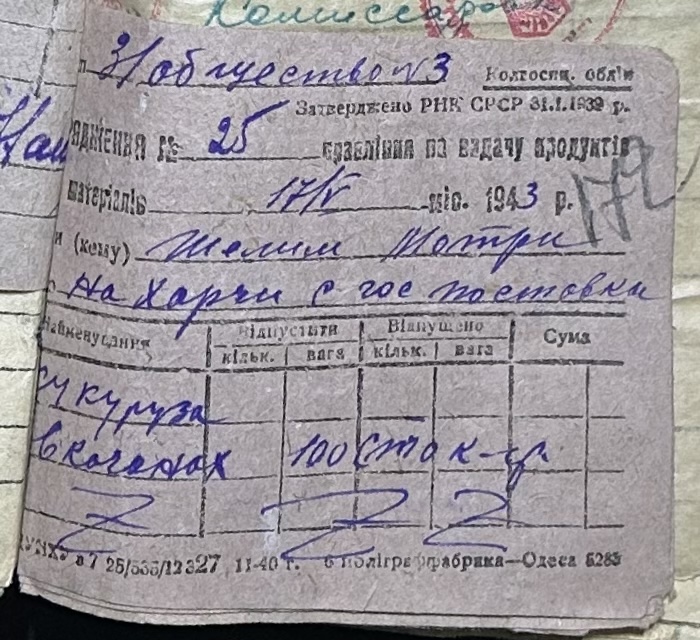 Комиссар
З/общество №3 Колгоспн. обл'ік
Затверджено РНК СРСР 31.1.1939 р.
ядження № 25 правління на видачу продуктів
матеріалів 17/V міс. 1943 р. 172
и (кому) Шелим Мотри
на Харчи с гос поставки
Найменування Відпустити Відпущено Сума
кільк. вага кільк. вага
кукуруза
в качанах 100 сто к-гр
25/535/12327 11-40 г. 6 Поліграффабрика—Одеса 5285